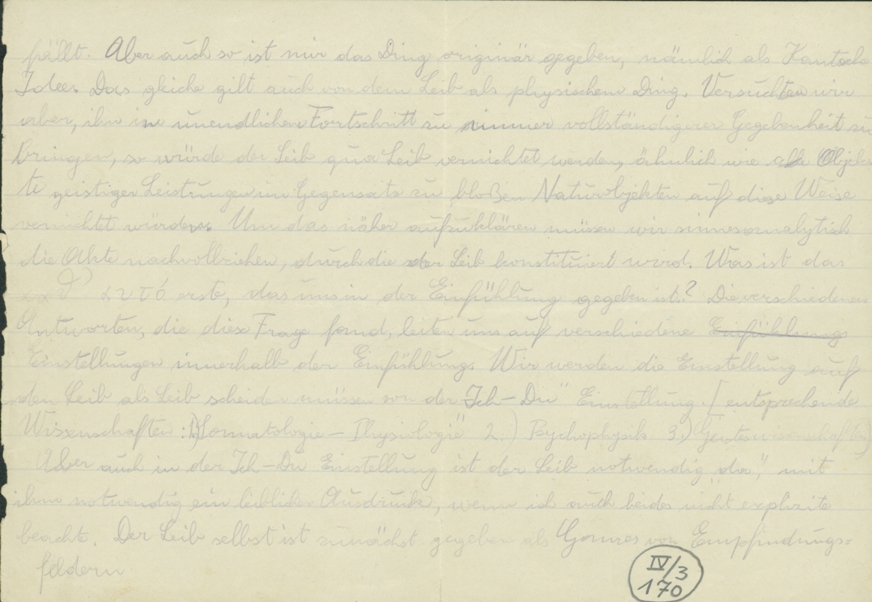 fällt. Aber auch so ist mir das Ding originär gegeben, nämlich als Kantsche
Idee. Das gleiche gilt auch von dem Leib als physischem Ding. Versuchten wir
aber, ihn in unendlichem Fortschritt zu immer vollständigerer Gegebenheit zu
bringen, so würde der Leib qua Leib vernichtet werden, ähnlich wie alle Objek-
te geistiger Leistungen im Gegensatz zu bloßen Naturobjekten auf diese Weise
vernichtet würden. Um das näher aufzuklären müssen wir sinnesanalytisch
die Akte nachvollziehen, durch die der Leib konstituiert wird. Was ist das
erste, das uns in der Einfühlung gegeben ist? Die verschiedenen
Antworten, die diese Frage fand, leiten uns auf verschiedene Einfühlungs
Einstellungen innerhalb der Einfühlung. Wir werden die Einstellung auf
den Leib als Leib scheiden müssen von der "Ich-Du" Einstellung. [entsprechende
Wissenschaften: 1) Somatologie - Physiologie 2.) Psychophysik 3.) Geisteswissenschaften)
Aber auch in der Ich-Du Einstellung ist der Leib notwendig "da", mit
ihm notwendig ein leiblicher Ausdruck, wenn ich auch beides nicht explizite
beachte. Der Leib selbst ist zunächst gegeben als Ganzes von Empfindungs-
feldern
IV/3
170